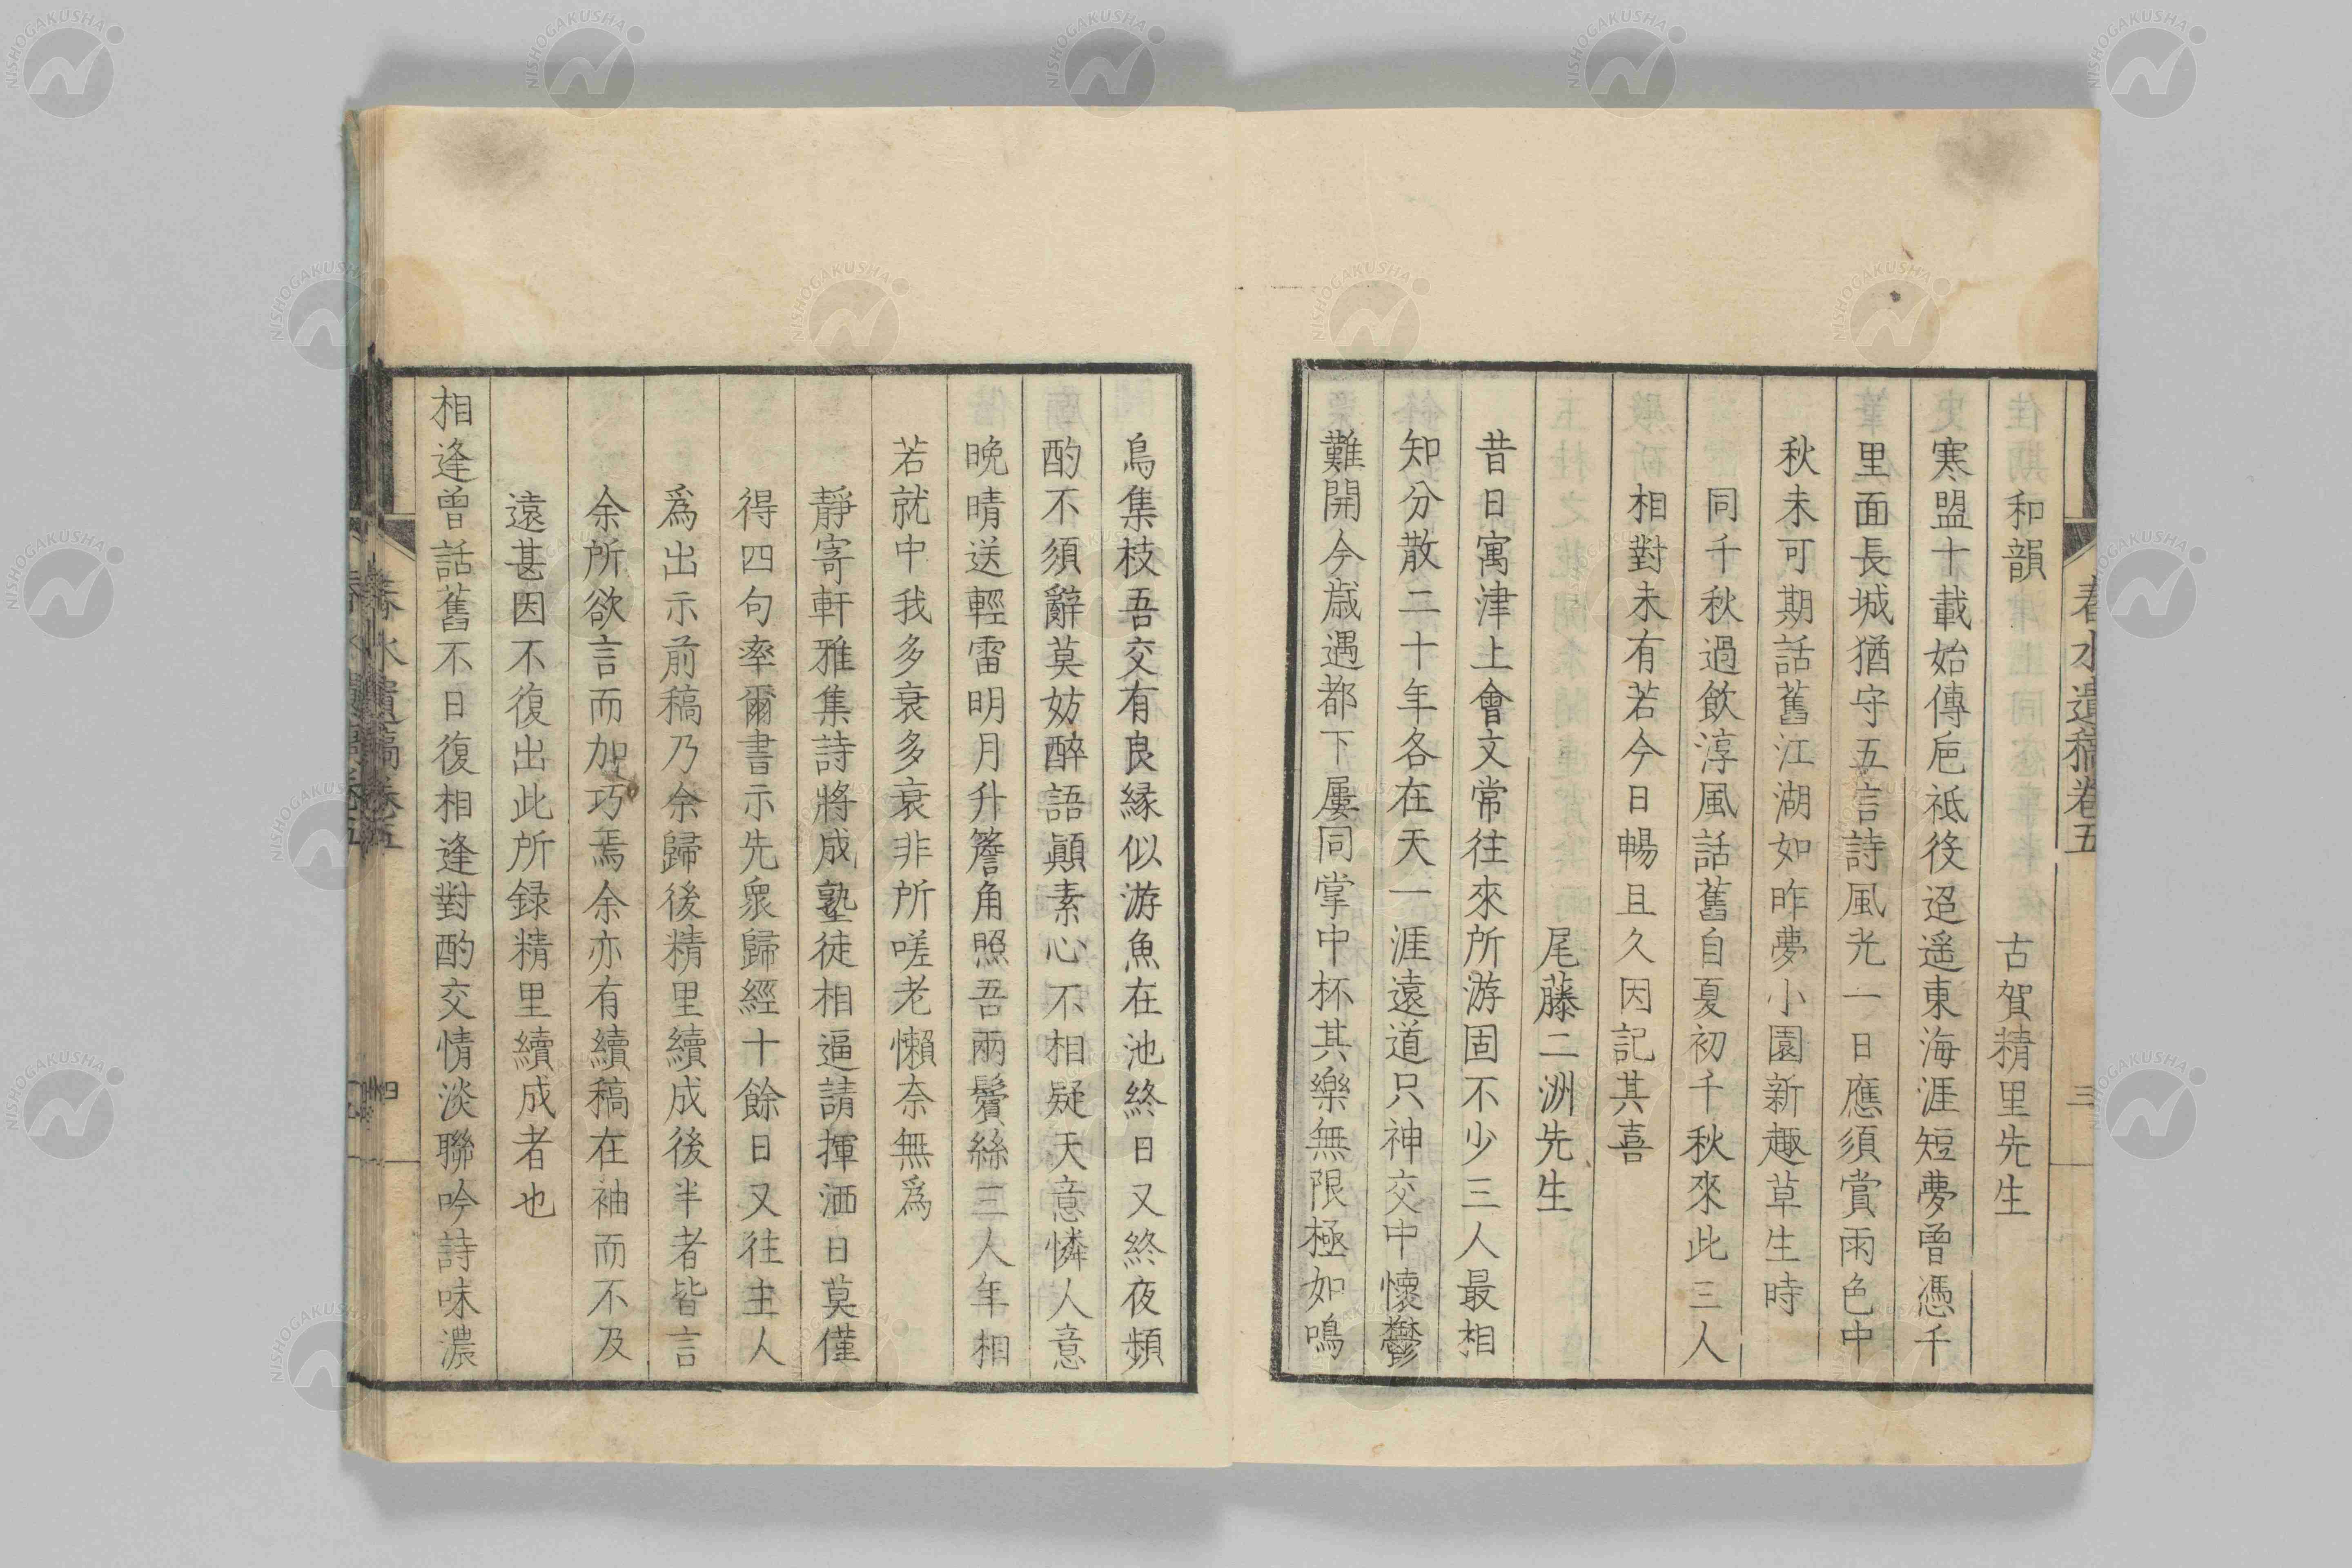 春水遺稿卷五
三
和韻
古賀精里先生
寒盟十載始傳卮祗役迢遥東海涯短夢曾憑千
里面長城猶守五言詩風光一日應須賞雨色中
秋未可期話舊江湖如昨夢小園新趣草生時
同千秋過飲淳風話舊自夏初千秋來此三人
相對未有若今日暢且久因記其喜
尾藤二洲先生
昔日寓津上會文常往來所游固不少三人最相
知分散二十年各在天一涯遠道只神交中懷鬱
難開今歳遇都下屢同掌中杯其樂無限極如鳴
鳥集枝吾交有良縁似游魚在池終日又終夜頻
酌不須辭莫妨醉語顚素心不相疑天意憐人意
晩晴送輕雷明月升簷角照吾兩鬢絲三人年相
若就中我多衰多衰非所嗟老懶奈無爲
靜寄軒雅集詩將成塾徒相逼請揮洒日莫僅
得四句率爾書示先衆歸經十餘日又往主人
爲出示前稿乃余歸後精里續成後半者皆言
余所欲言而加巧焉余亦有續稿在袖而不及
遠甚因不復出此所録精里續成者也
相逢曾話舊不日復相逢對酌交情淡聯吟詩味濃
春水遺稿卷五
四
NISHOGAKUSHA